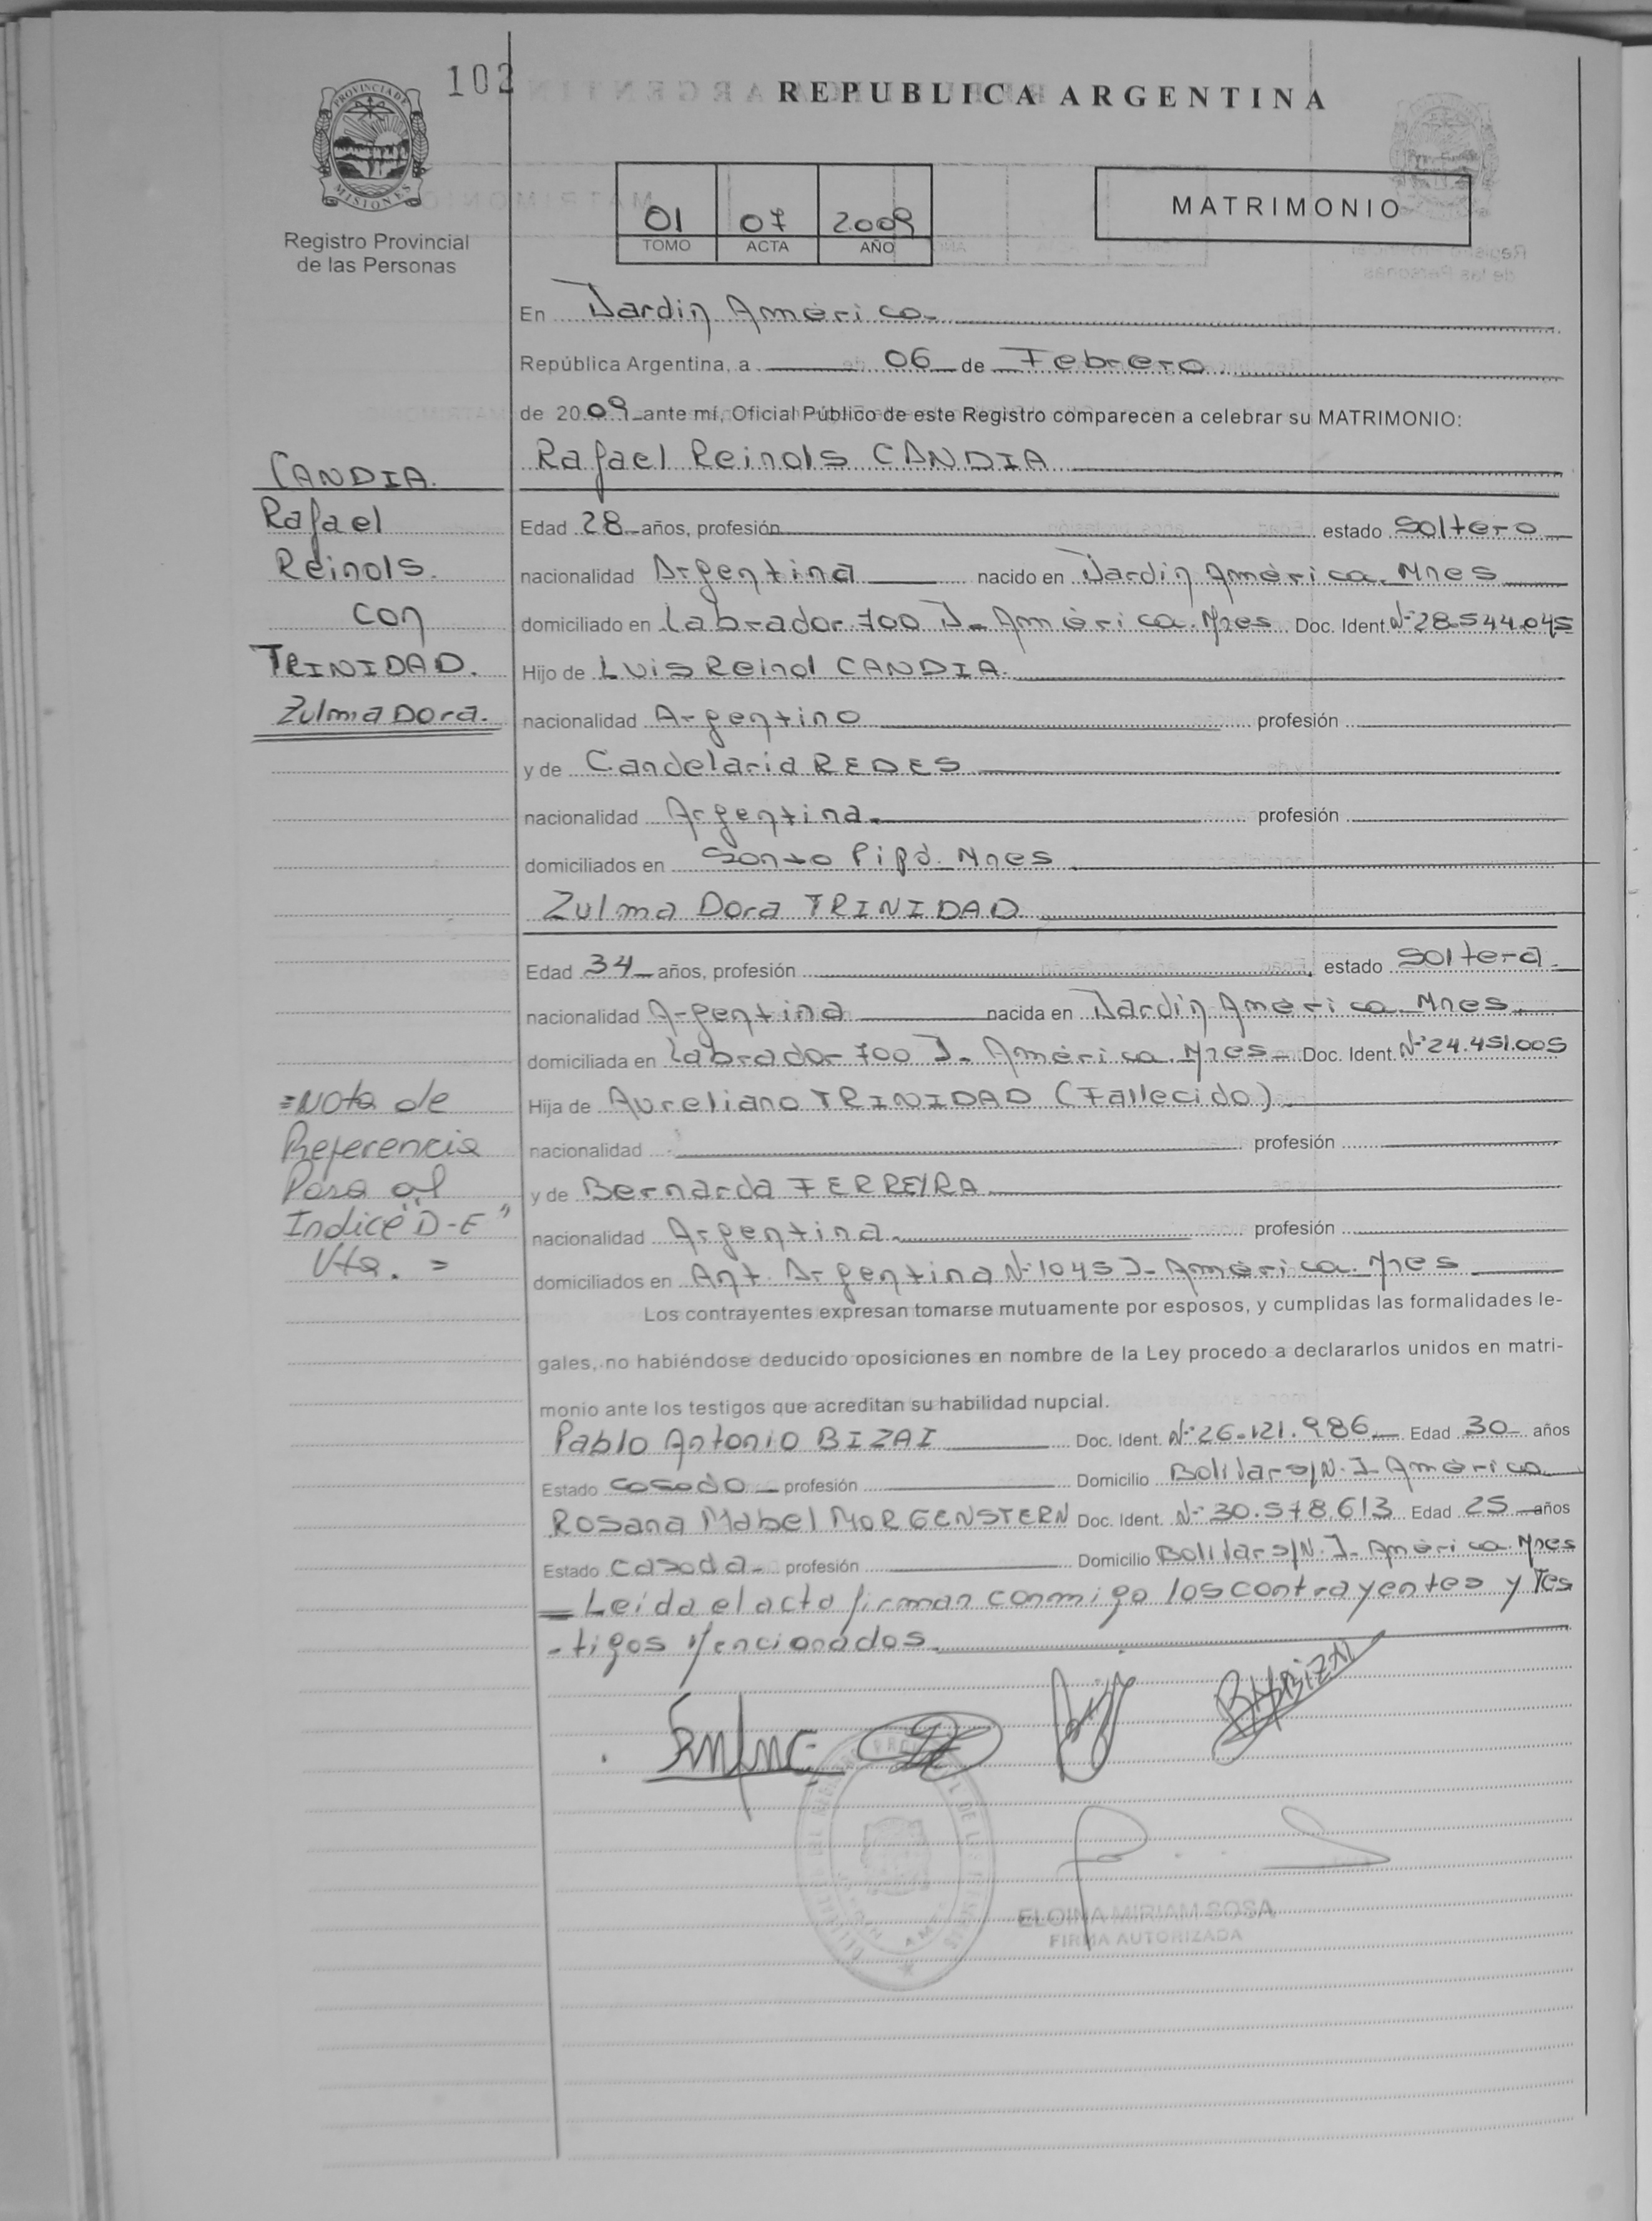 102
REPUBLICA ARGENTINA
PROVINCIA DE
MISIONES
Registro Provincial
de las Personas
01 07 2009
TOMO ACTA AÑO
MATRIMONIO
En Jardin América.
República Argentina, a 06 de Febrero
de 2009 ante mí, Oficial Público de este Registro comparecen a celebrar su MATRIMONIO:
Rafael Reinols CANDIA
Edad 28 años, profesión estado Soltero
nacionalidad Argentina nacido en Jardin América. Mnes
domiciliado en Labrador 700 J. América. Mnes Doc. Ident. Nº 28.544.045
Hijo de Luis Reinol CANDIA.
nacionalidad Argentino profesión
y de Candelaria REDES
nacionalidad Argentina. profesión
domiciliados en Santo Pipó. Mnes
Zulma Dora TRINIDAD
Edad 34 años, profesión estado Soltera
nacionalidad Argentina nacida en Jardin América. Mnes.
domiciliada en Labrador 700 J. América. Mnes Doc. Ident. Nº 24.451.005
Hija de Aureliano TRINIDAD (Fallecido)
nacionalidad profesión
y de Bernarda FERREYRA
nacionalidad Argentina. profesión
domiciliados en Ant. Argentina Nº 1045 J. América. Mnes
Los contrayentes expresan tomarse mutuamente por esposos, y cumplidas las formalidades le-
gales, no habiéndose deducido oposiciones en nombre de la Ley procedo a declararlos unidos en matri-
monio ante los testigos que acreditan su habilidad nupcial.
Pablo Antonio BIZAI Doc. Ident. Nº 26.121.986 Edad 30 años
Estado Casado profesión Domicilio Bolivar s/N. J. América
Rosana Mabel MORGENSTERN Doc. Ident. Nº 30.578.613 Edad 25 años
Estado Casada profesión Domicilio Bolivar s/N. J. América. Mnes
= Leida el acta firman conmigo los contrayentes y Tes
-tigos Mencionados.
ELOINA MIRIAM SOSA
FIRMA AUTORIZADA
CANDIA.
Rafael
Reinols.
con
TRINIDAD.
Zulma Dora.
=Nota de
Referencia
Pasa al
Indice "D-E"
Vta. =